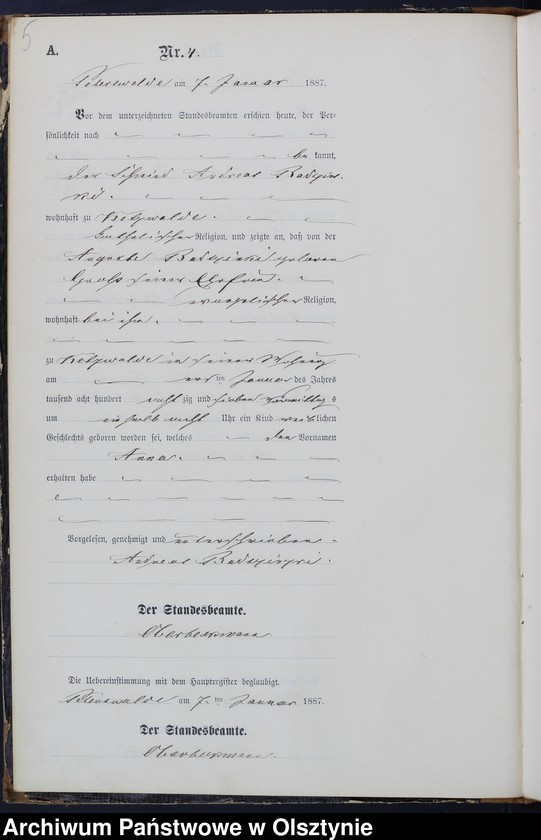 5
A. Nr. 4.
Peterswalde am 7. Januar 1887.
Vor dem unterzeichneten Standesbeamten erschien heute, der Per-
sönlichkeit nach
be kannt,
der Schmied Andreas
wohnhaft zu
katholischer Religion, und zeigte an, daß von der
Auguste geborene
Groß seiner Ehefrau
evangelischer Religion,
wohnhaft bei ihm,
zu in seiner Wohnung
am ersten Januar des Jahres
tausend acht hundert acht zig und sieben Vormittag s
um acht Uhr ein Kind weiblichen
Geschlechts geboren worden sei, welches den Vornamen
Anna
erhalten habe
Vorgelesen, genehmigt und unterschrieben
Andreas
Der Standesbeamte.
Die Uebereinstimmung mit dem Hauptregister beglaubigt.
Peterswalde am 7. ten Januar 1887.
Der Standesbeamte.
Archiwum Państwowe w Olsztynie